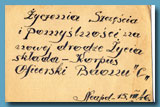 Życzenia Szczęścia
i Pomyślności na
nowej drodze Życia
składa - Korpus
Oficerski Baonu "C"
Neapol - 13.III.46.